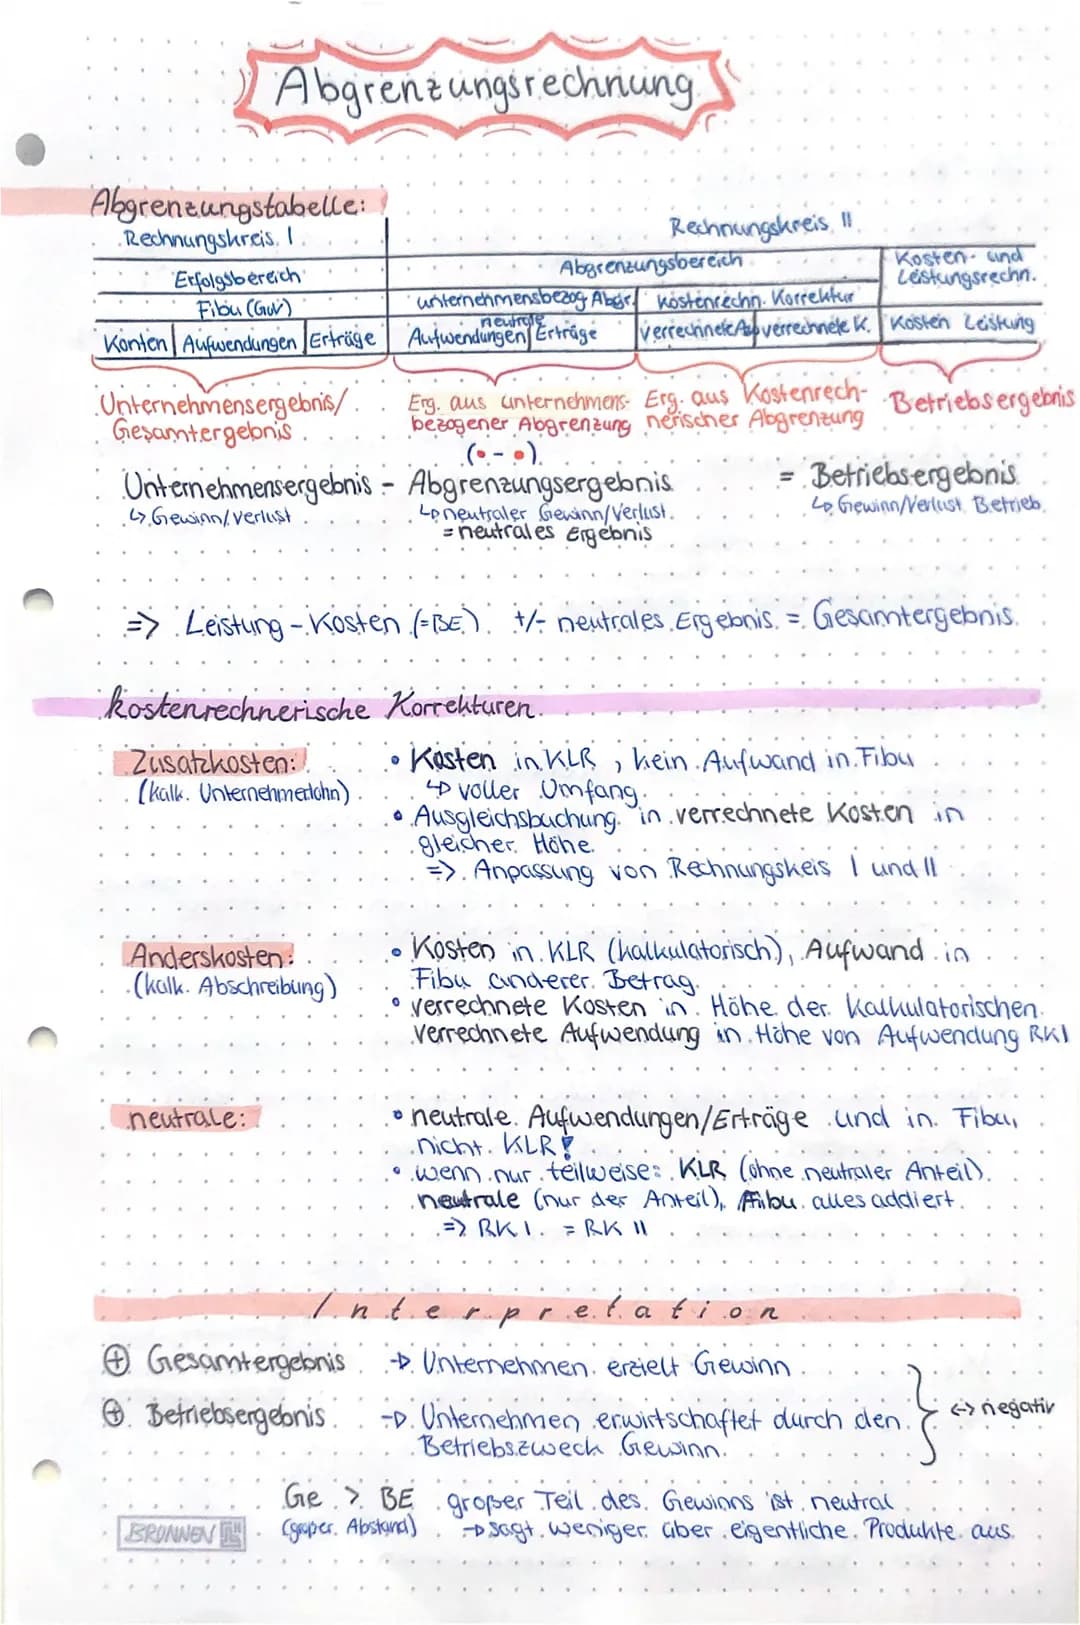 Abgrenzungsrechnung
Abgrenzungstabelle:
Rechnungskreis I
Rechnungskreis II
Erfolgsbereich
Abgrenzungsbereich
Kosten- und
Leistungsrechn.
Fibu (GuV)
unternehmensbezog. Abgr.
kostenrechn. Korrektur
Konten Aufwendungen Erträge
neutrale
Aufwendungen Erträge
verrechnete verrechnete K.
Kosten Leistung
Unternehmensergebnis/
Gesamtergebnis
Erg. aus unternehmens-
bezogener Abgrenzung
Erg. aus Kostenrech-
nerischer Abgrenzung
Betriebsergebnis
(•-•)
Unternehmensergebnis - Abgrenzungsergebnis = Betriebsergebnis
↳ Gewinn/Verlust
↳ neutraler Gewinn/Verlust
= neutrales Ergebnis
↳ Gewinn/Verlust Betrieb
=> Leistung - Kosten (=BE) +/- neutrales Ergebnis = Gesamtergebnis
kostenrechnerische Korrekturen
Zusatzkosten:
(kalk. Unternehmerlohn)
• Kosten in KLR, kein Aufwand in Fibu
↳ voller Umfang
• Ausgleichsbuchung in verrechnete Kosten in
gleicher Höhe
=> Anpassung von Rechnungskeis I und II
Anderskosten:
(kalk. Abschreibung)
• Kosten in KLR (kalkulatorisch), Aufwand in
Fibu anderer Betrag
• verrechnete Kosten in Höhe der Kalkulatorischen
verrechnete Aufwendung in Höhe von Aufwendung RKI
neutrale:
• neutrale Aufwendungen/Erträge und in Fibu,
nicht KLR!
• wenn nur teilweise: KLR (ohne neutraler Anteil)
neutrale (nur der Anteil), Fibu alles addiert
=> RK I = RK II
Interpretation
⊕ Gesamtergebnis → Unternehmen erzielt Gewinn
⊕ Betriebsergebnis → Unternehmen erwirtschaftet durch den
Betriebszweck Gewinn
↔ negativ
Ge > BE großer Teil des Gewinns ist neutral
(großer Abstand) → sagt weniger über eigentliche Produkte aus
BRONNEN